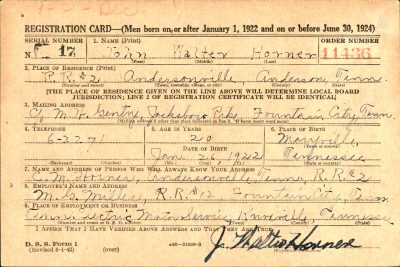 REGISTRATION CARD—(Men born on or after January 1, 1922 and on or before June 30, 1924)
SERIAL NUMBER 1. NAME (Print) ORDER NUMBER
17 John Walter Horner 11436
(First) (Middle) (Last)
2. PLACE OF RESIDENCE (Print)
R.R.#2 Andersonville, Anderson, Tenn.
(Number and street) (Town, township, village, or city) (County) (State)
[THE PLACE OF RESIDENCE GIVEN ON THE LINE ABOVE WILL DETERMINE LOCAL BOARD
JURISDICTION; LINE 2 OF REGISTRATION CERTIFICATE WILL BE IDENTICAL]
3. MAILING ADDRESS
C/o M. H. Gentry, Jacksboro Pike, Fountain City, Tenn
4. TELEPHONE 5. AGE IN YEARS 6. PLACE OF BIRTH
20 Maryville
DATE OF BIRTH
Jan. 26, 1922 Tennessee
(Exchange) (Number) (Mo.) (Day) (Yr.) (State or country)
7. NAME AND ADDRESS OF PERSON WHO WILL ALWAYS KNOW YOUR ADDRESS
C. M. Horner, Andersonville, Tenn, R.R.#2
8. EMPLOYER'S NAME AND ADDRESS
Fountain City, Tenn
9. PLACE OF EMPLOYMENT OR BUSINESS
Electric Motor Service, Knoxville, Tennessee
I AFFIRM THAT I HAVE VERIFIED ABOVE ANSWERS AND THAT THEY ARE TRUE.
D. S. S. Form 1
(Revised 6-1-42) (over)
J. Walter Horner